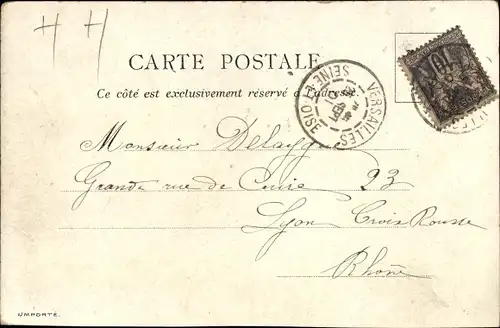 H H
CARTE POSTALE
Ce côté est exclusivement réservé à l'adresse.
VERSAILLES
SEINE-ET-OISE
10
Monsieur Delaye
Grande rue de Cuire 23
Lyon Croix Rousse
Rhône
IMPORTÉ.